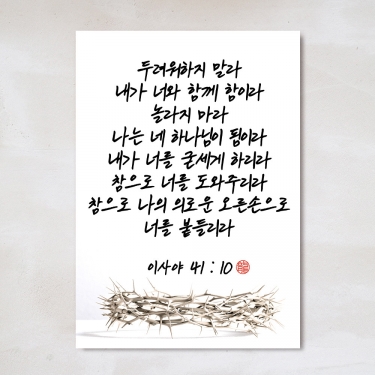 두려워하지 말라
내가 너와 함께 함이라
놀라지 마라
나는 네 하나님이 됨이라
내가 너를 굳세게 하리라
참으로 너를 도와주리라
참으로 나의 의로운 오른손으로
너를 붙들리라
이사야 41 : 10